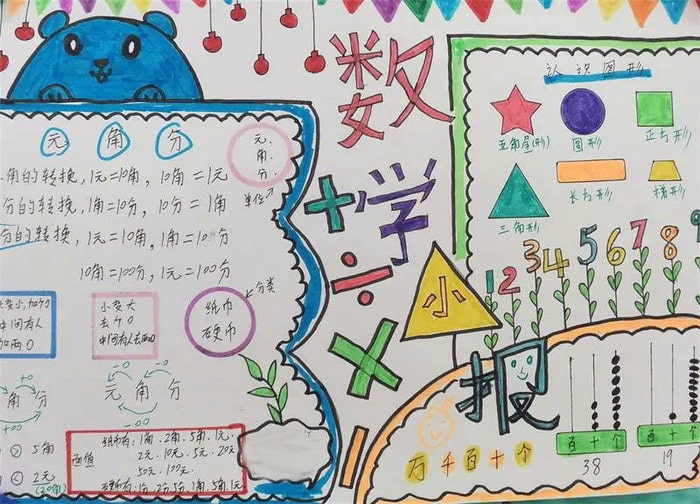 数学小报
元 角 分
元.
角.
分.
单位
角的转换,1元=10角, 10角=1元
分的转换, 1角=10分, 10分=1角
分的转换, 1元=10角, 1角=10分
10角=100分, 1元=100分
中间有人
加两0
小变大
去个0
中间有人去两0
纸巾
硬巾
分类
-0 -0
角 分
元 角 分
+0 +0
-00
> 5角
< 2元
(20角)
面值
纸巾有: 1角. 2角. 5角. 1元.
2元. 10元. 5元. 20元
50元. 100元.
1角. 5角. 1元
认识图形
五角星(形)
圆形
正方形
三角形
长方形
梯形
1 2 3 4 5 6 7 8 9
万 千 百 十 个
百 十 个
38
百 十 个
19